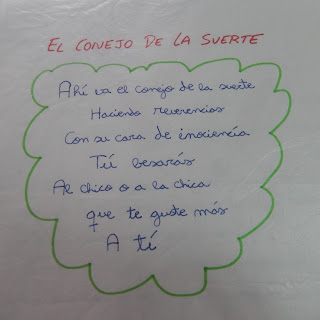 EL CONEJO DE LA SUERTE
Ahí va el conejo de la suerte
Haciendo reverencias
Con su cara de inociencia
Tú besarás
Al chico o a la chica
que te guste más
A tí